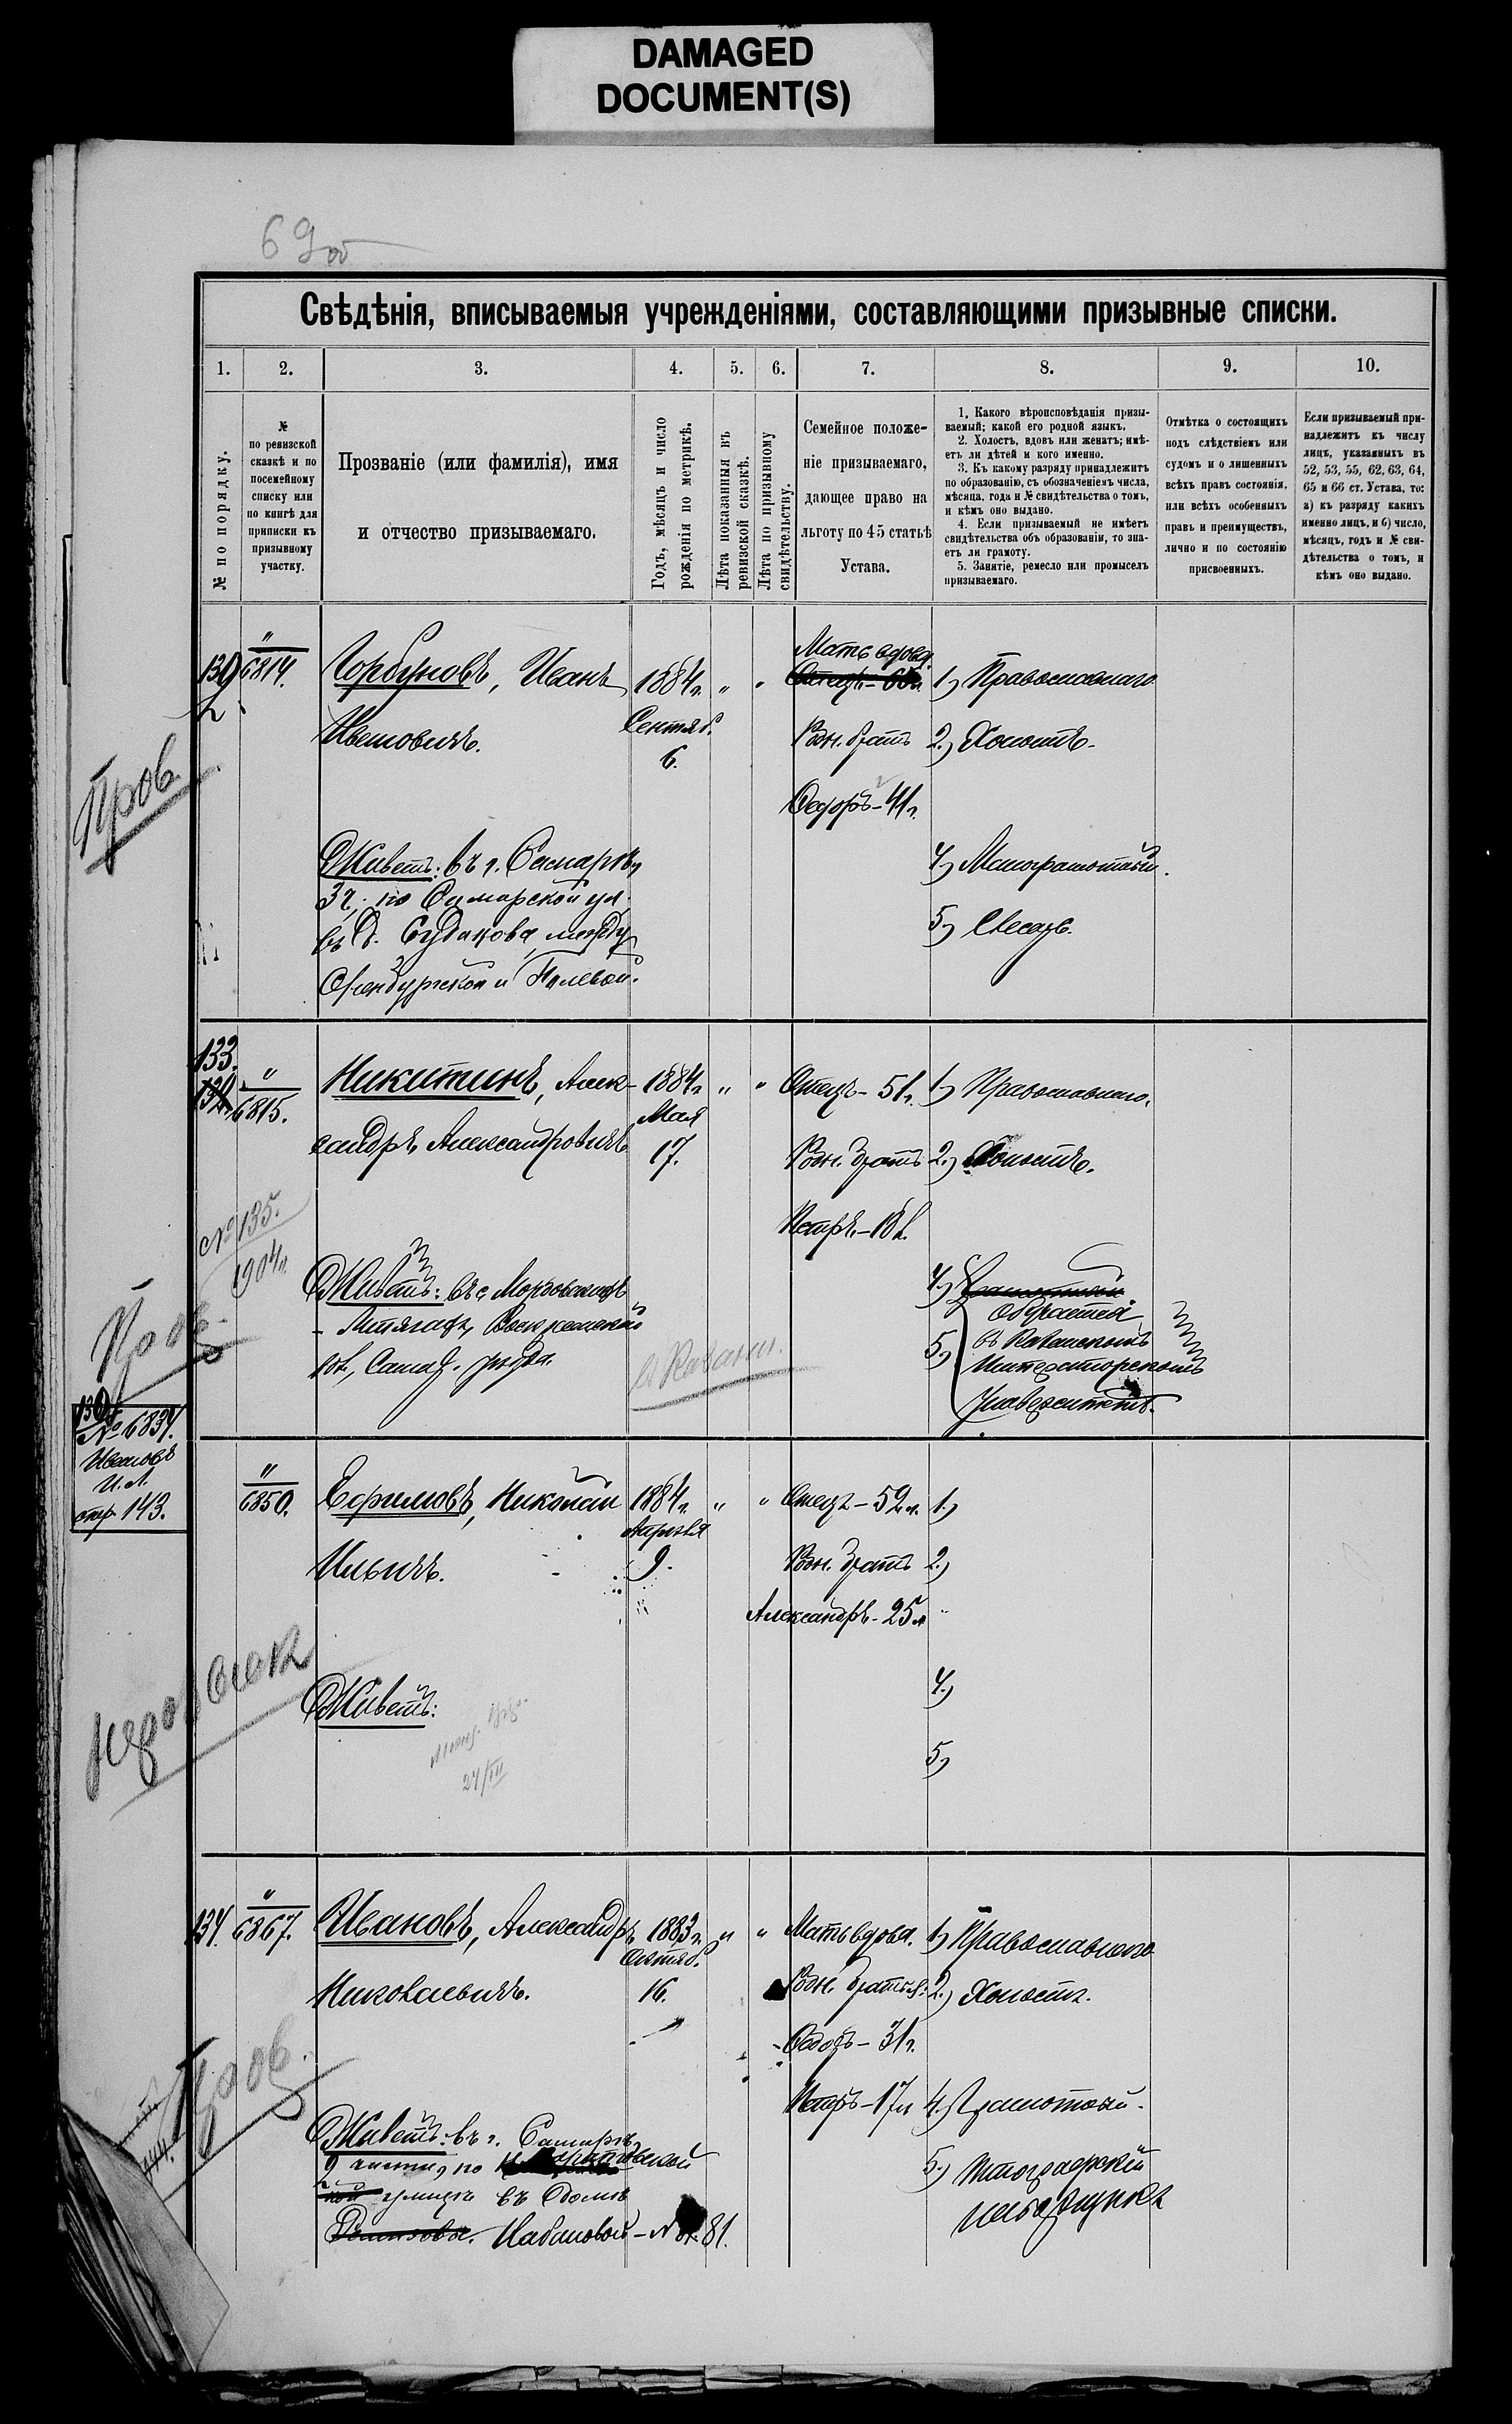 DAMAGED
DOCUMENT(S)
69об
Свѣдѣнія, вписываемыя учрежденіями, составляющими призывные списки.
1. 2. 3. 4. 5. 6. 7. 8. 9. 10.
№ по порядку.
№
по ревизской
сказкѣ и по
посемейному
списку или
по книгѣ для
приписки къ
призывному
участку.
Прозваніе (или фамилія), имя
и отчество призываемаго.
Годъ, мѣсяцъ и число
рожденія по метрикѣ.
Лѣта показанныя въ
ревизской сказкѣ.
Лѣта по призывному
свидѣтельству.
Семейное положе-
ніе призываемаго,
дающее право на
льготу по 45 статьѣ
Устава.
1. Какого вѣроисповѣданія призы-
ваемый; какой его родной языкъ.
2. Холостъ, вдовъ или женатъ; имѣ-
етъ ли дѣтей и кого именно.
3. Къ какому разряду принадлежитъ
по образованію, съ обозначеніемъ числа,
мѣсяца, года и № свидѣтельства о томъ,
и кѣмъ оно выдано.
4. Если призываемый не имѣетъ
свидѣтельства объ образованіи, то зна-
етъ ли грамоту.
5. Занятіе, ремесло или промыселъ
призываемаго.
Отмѣтка о состоящихъ
подъ слѣдствіемъ или
судомъ и о лишенныхъ
всѣхъ правъ состоянія,
или всѣхъ особенныхъ
правъ и преимуществъ,
лично и по состоянію
присвоенныхъ.
Если призываемый при-
надлежитъ къ числу
лицъ, указанныхъ въ
52, 53, 55, 62, 63, 64,
65 и 66 ст. Устава, то:
а) къ разряду какихъ
именно лицъ, и б) число,
мѣсяцъ, годъ и № сви-
дѣтельства о томъ, и
кѣмъ оно выдано.
" 6814.
Горбуновъ, Иванъ
Ивановичъ.
1884г.
Сентяб.
6.
" "
Мать вдова.
Отецъ
Родн. братъ
Федоръ - 41г.
1) Православнаго
2.) Холостъ.
4) Малограмотный.
5) Слесарь.
Пров.
Живетъ: въ г. Самарѣ,
3ч. по Самарской ул.
въ д. Судакова, между
Оренбургской и Полевой.
133.
132.
" 6815.
Никитинъ, Алек-
сандръ Александровичъ
1884г.
Мая
17.
" "
Отецъ - 51г.
Родн. братъ
Петръ - 18л.
1) Православнаго.
2.) Холостъ.
№135.
1904г.
Пров.
Живетъ: въ с. Мордовскихъ
- Липягахъ, Воскресенской
вол., Самар. уѣзда.
въ Казани.
4) Грамотный
обучается
5) въ Казанскомъ
Императорскомъ
Университетѣ.
№6834.
Ивановъ
И. А.
стр. 143.
" 6850.
Ефимовъ, Николай
Ильичъ.
1884г.
Апрѣля
9.
" "
Отецъ - 52г.
Родн. братъ
Александръ - 25л
1.)
2.)
4.)
5)
Живетъ:
24/III
134.
" 6867.
Ивановъ, Александръ
Николаевичъ.
1883г.
Октяб.
16.
" "
Мать вдова.
Родн. братья:
Федоръ - 31г.
Петръ - 17л
1) Православнаго
2.) Холостъ.
4.) Грамотный.
5.) Типографскій
наборщикъ
Пров.
Живетъ: въ г. Самарѣ,
2 части, по
улицѣ въ домѣ
- № 81.